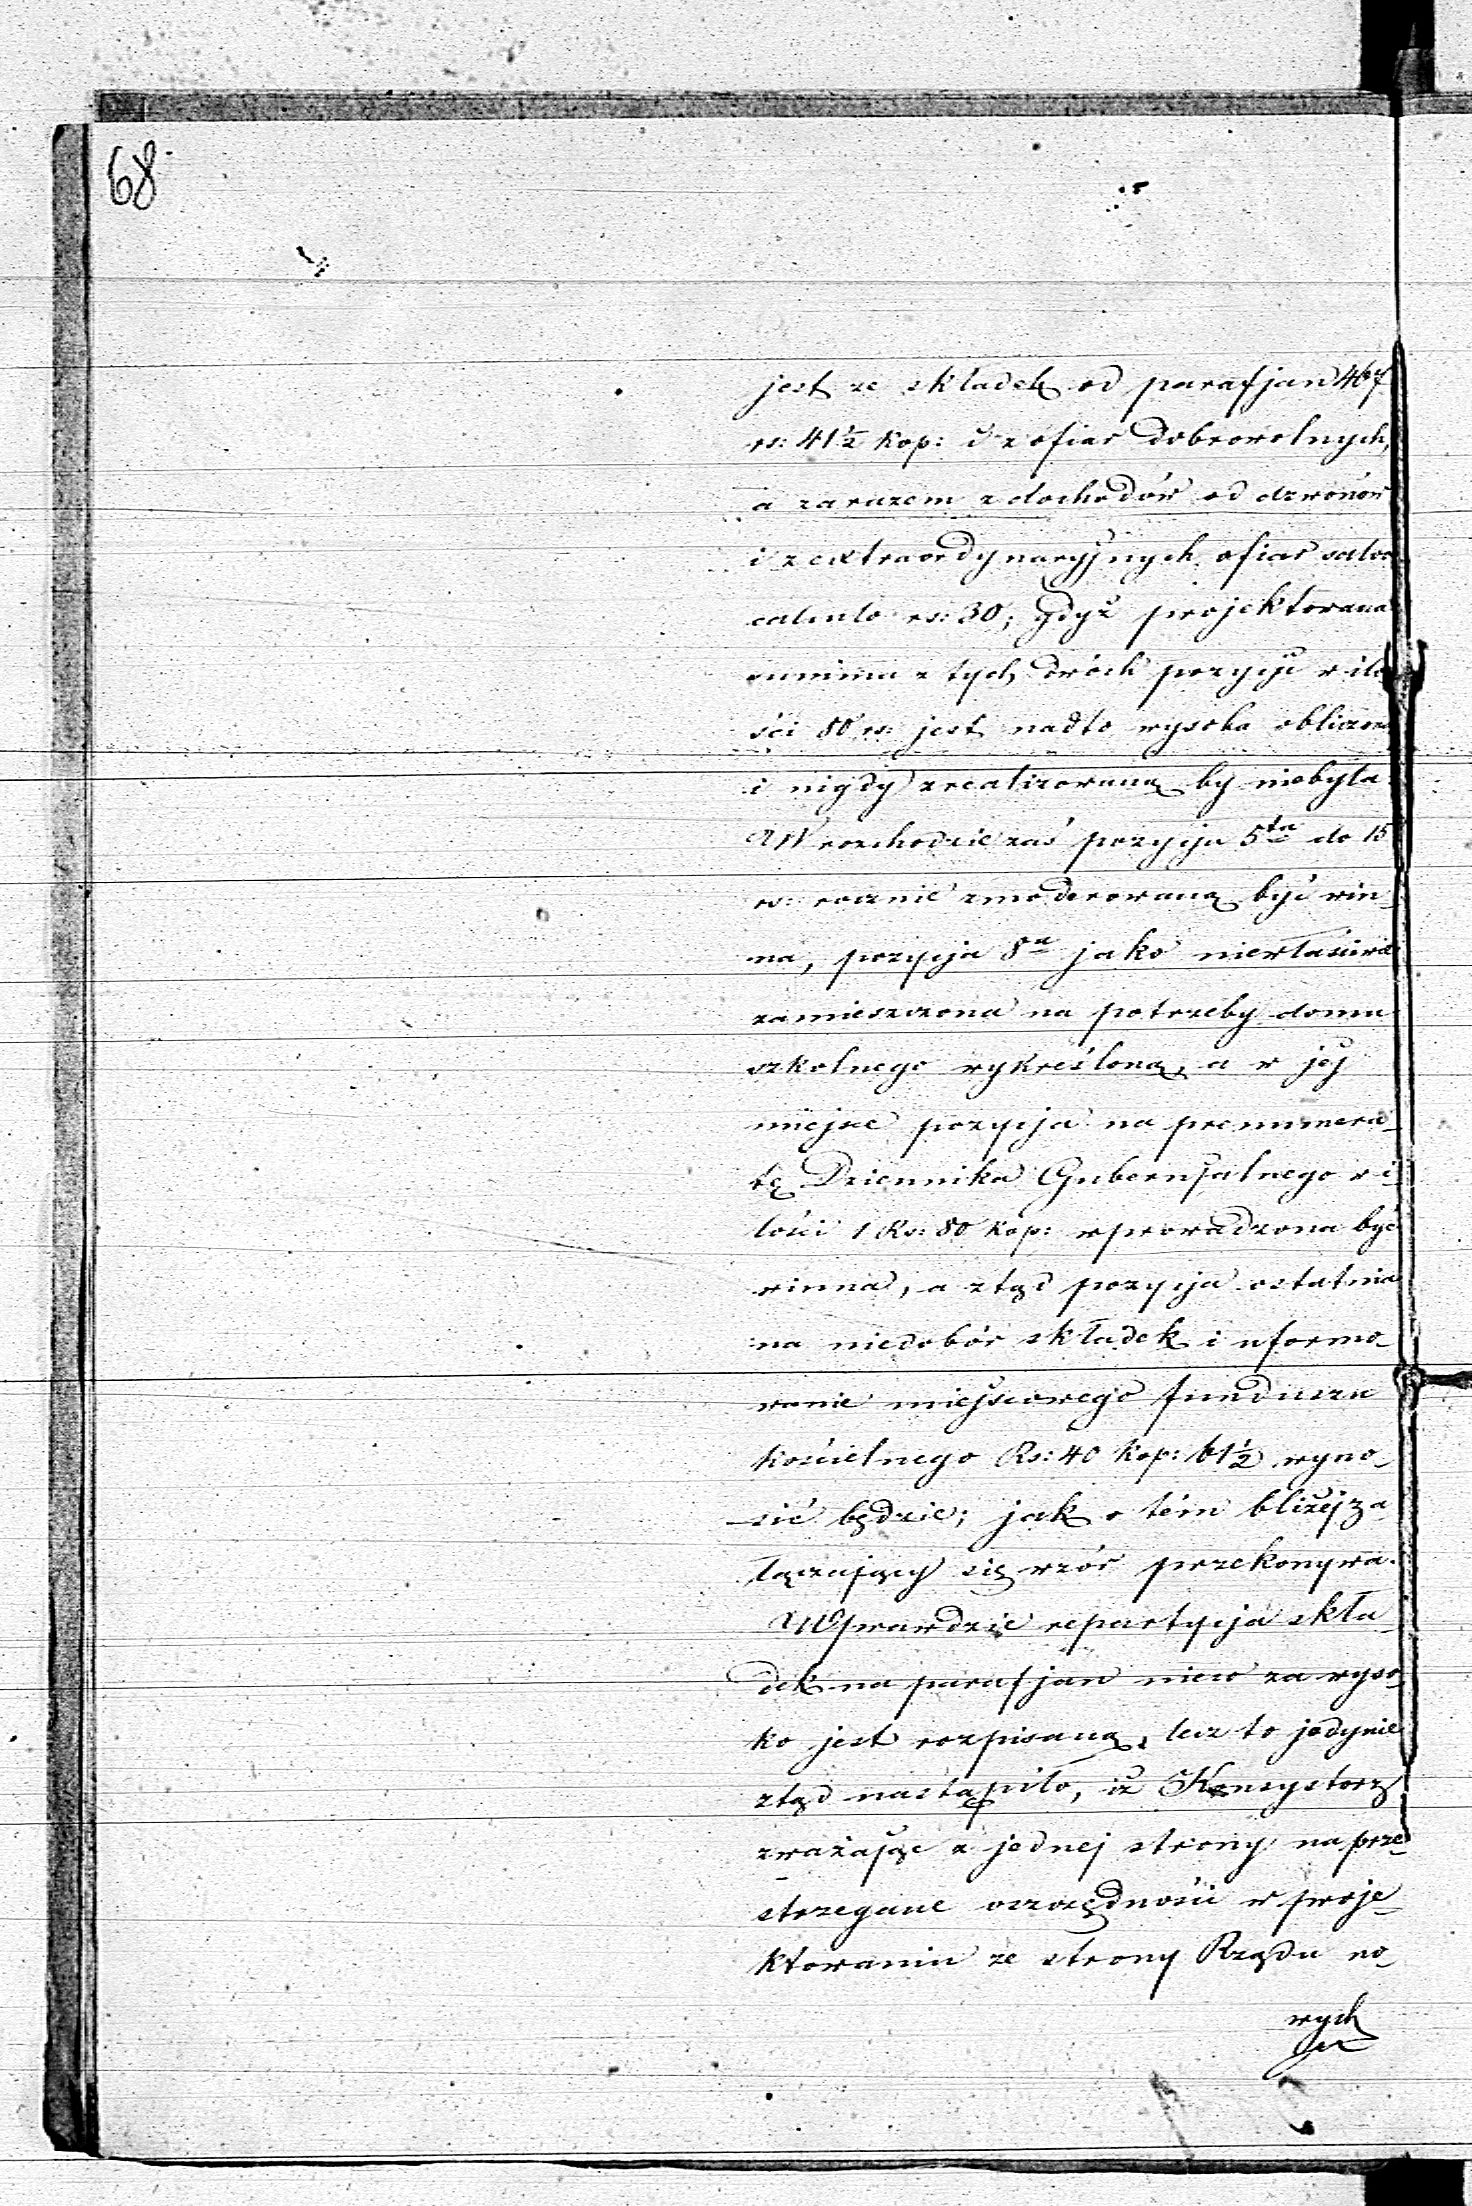 68
jest ze składek od parafjan 467
rs: 41½ kop: i z ofiar dobrowolnych,
a zarazem z dochodów od dzwonów
i z extraordynaryjnych ofiar salvo
calculo rs: 30; gdyż projektowana
summa z tych dwóch pozycji w ilo
ści 80 rs: jest nadto wysoko obliczona
i nigdy zrealizowaną by niebyła.
W rozchodzie zaś pozycja 5ta do 15
rs: rocznie zmoderowaną być win-
na, pozycja 8a jako niewłaściwie
zamieszczona na potrzeby domu
szkolnego wykreśloną, a w jej
miejsce pozycja na prenumera-
tę Dziennika Gubernjalnego w i-
lości 1 Rs: 80 kop: wprowadzona być
winna, a ztąd pozycja ostatnia
na niedobór składek i uformo-
wanie miejscowego funduszu
kościelnego Rs: 40 kop: 61½ wyno-
sić będzie; jak o tém bliżej za
łączający się wzór przekonywa.
Wprawdzie repartycja skła-
dek na parafjan nieco za wyso-
ko jest rozpisaną, lecz to jedynie
ztąd nastąpiło, iż Konsystorz
zważając z jednej strony na prze-
strzegane oszczędności w proje-
ktowaniu ze strony Rządu no-
wych